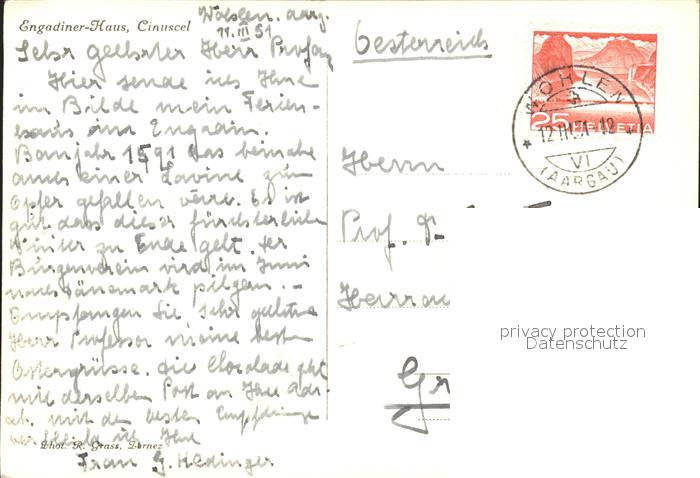 Engadiner-Haus, Cinuscel
Wohlen. aarg.
11. III 51
Sehr geehrter Herr Prof.
Hier sende ich Ihne
im Bilde mein Ferien-
haus im Engadin.
Baujahr 1591 das beinahe
auch einer Lavine zum
Opfer gefallen wäre. Es ist
gut dass dieser fürchterliche
Winter zu Ende geht. Der
Burgenverein wird im Juni
nach Dänemark pilgern. -
Empfangen Sie sehr geehrter
Herr Professor meine besten
Ostergrüsse. die Chocolade geht
mit derselben Post an Ihre Adr.
ab. mit den besten Empfehlunge
verbleibe ich Ihre
Phot. R. Grass, Zernez
Frau J. Hedinger
Oesterreich
Herrn
Prof. D
Herrn
Gr
25 HELVETIA
WOHLEN
3
* 12.III.51-12 *
VI
(AARGAU)
privacy protection
Datenschutz